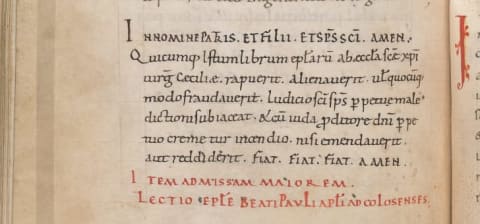 IN NOMINE PATRIS. ET FILII. ET SPS̄ SCĪ. AMEN.
Quicumq; istum librum eplarū ab eccl̄a scē xp̄i
uirg̅ Ceciliȩ. rapuerit. alienauerit. ul̄ quocūq;
modo fraudauerit. Iudicio scī sps̄ perpetuę male
dictioni subiaceat. & cū iuda proditore dn̄i perpe
tuo cremetur incendio. nisi emendauerit.
aut reddiderit. FIAT. FIAT. FIAT. AMEN.
ITEM AD MISSAM MAIOREM.
LECTIO EPL̄E BEATI PAVLI APL̄I AD COLOSENSES.